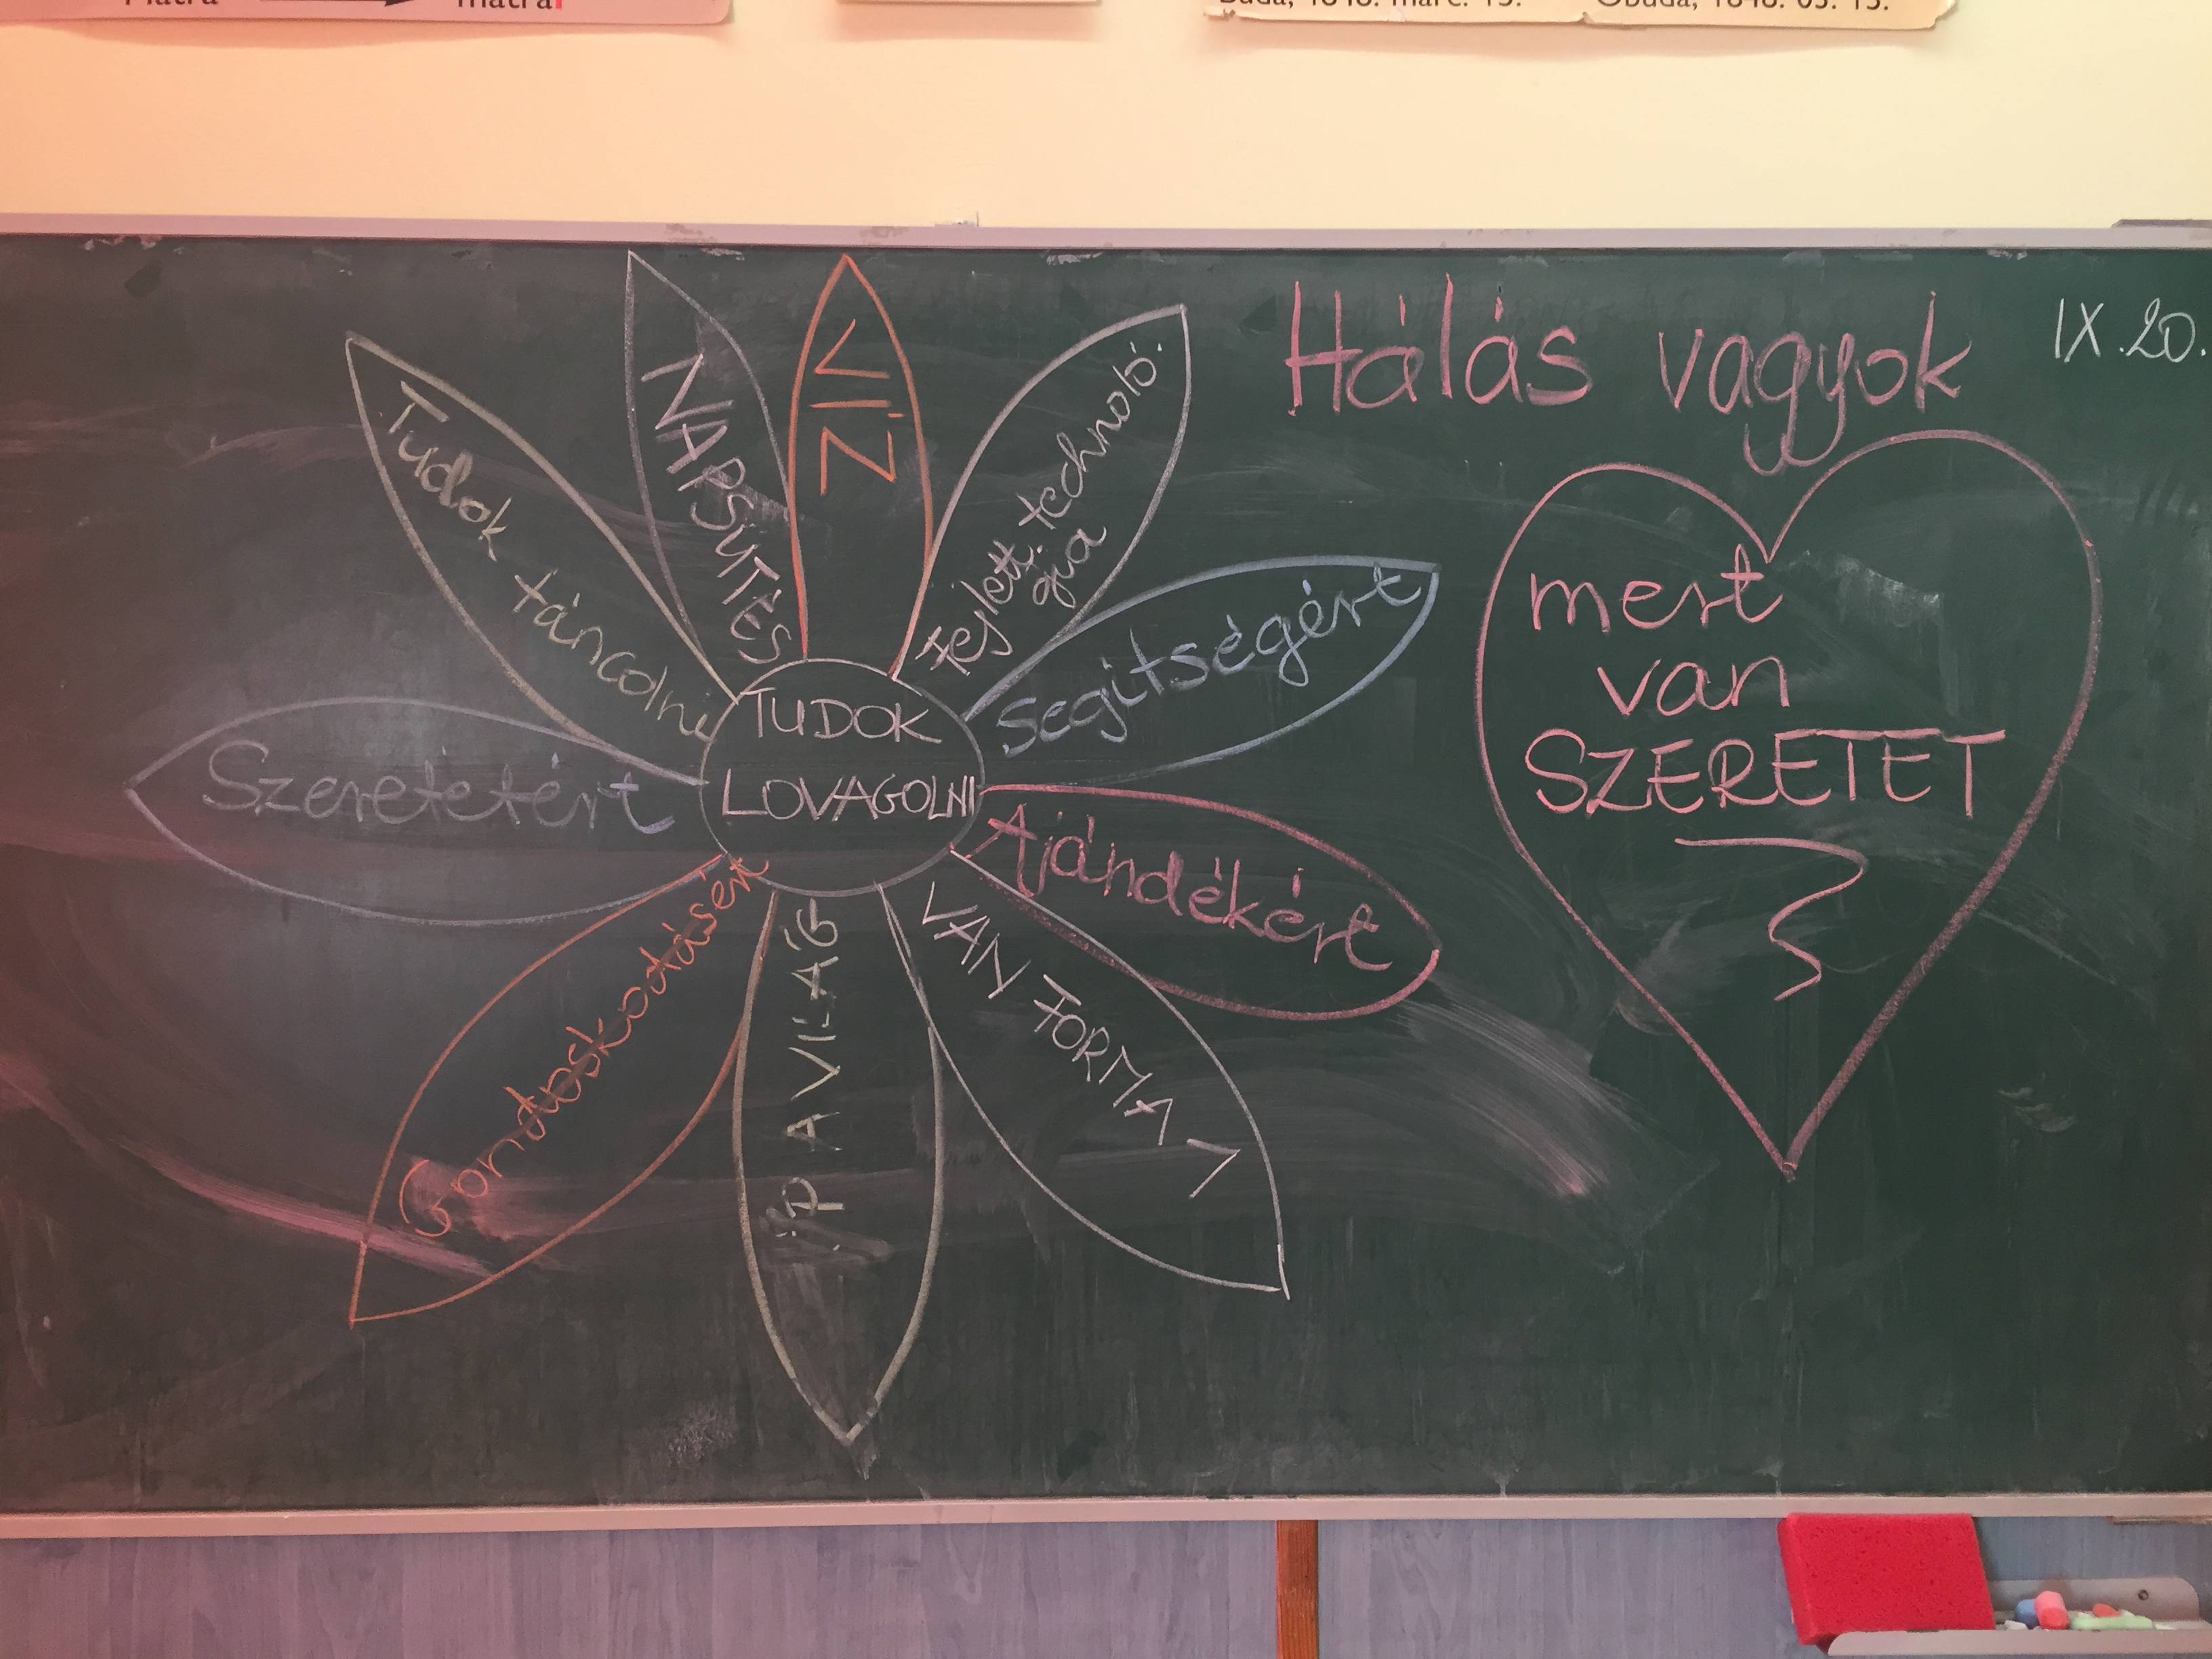 Mátra mátrai
Buda, 1848. márc. 15. Óbuda, 1848. 03. 15.
Hálás vagyok
IX.20.
mert
van
SZERETET
TUDOK
LOVAGOLNI
Tudok táncolni
NAPSÜTÉS
VÍZ
fejlett technoló-
gia
Segítségért
Ajándékért
VAN FORMA 1
A VILÁG
Gondoskodásért
Szeretetért